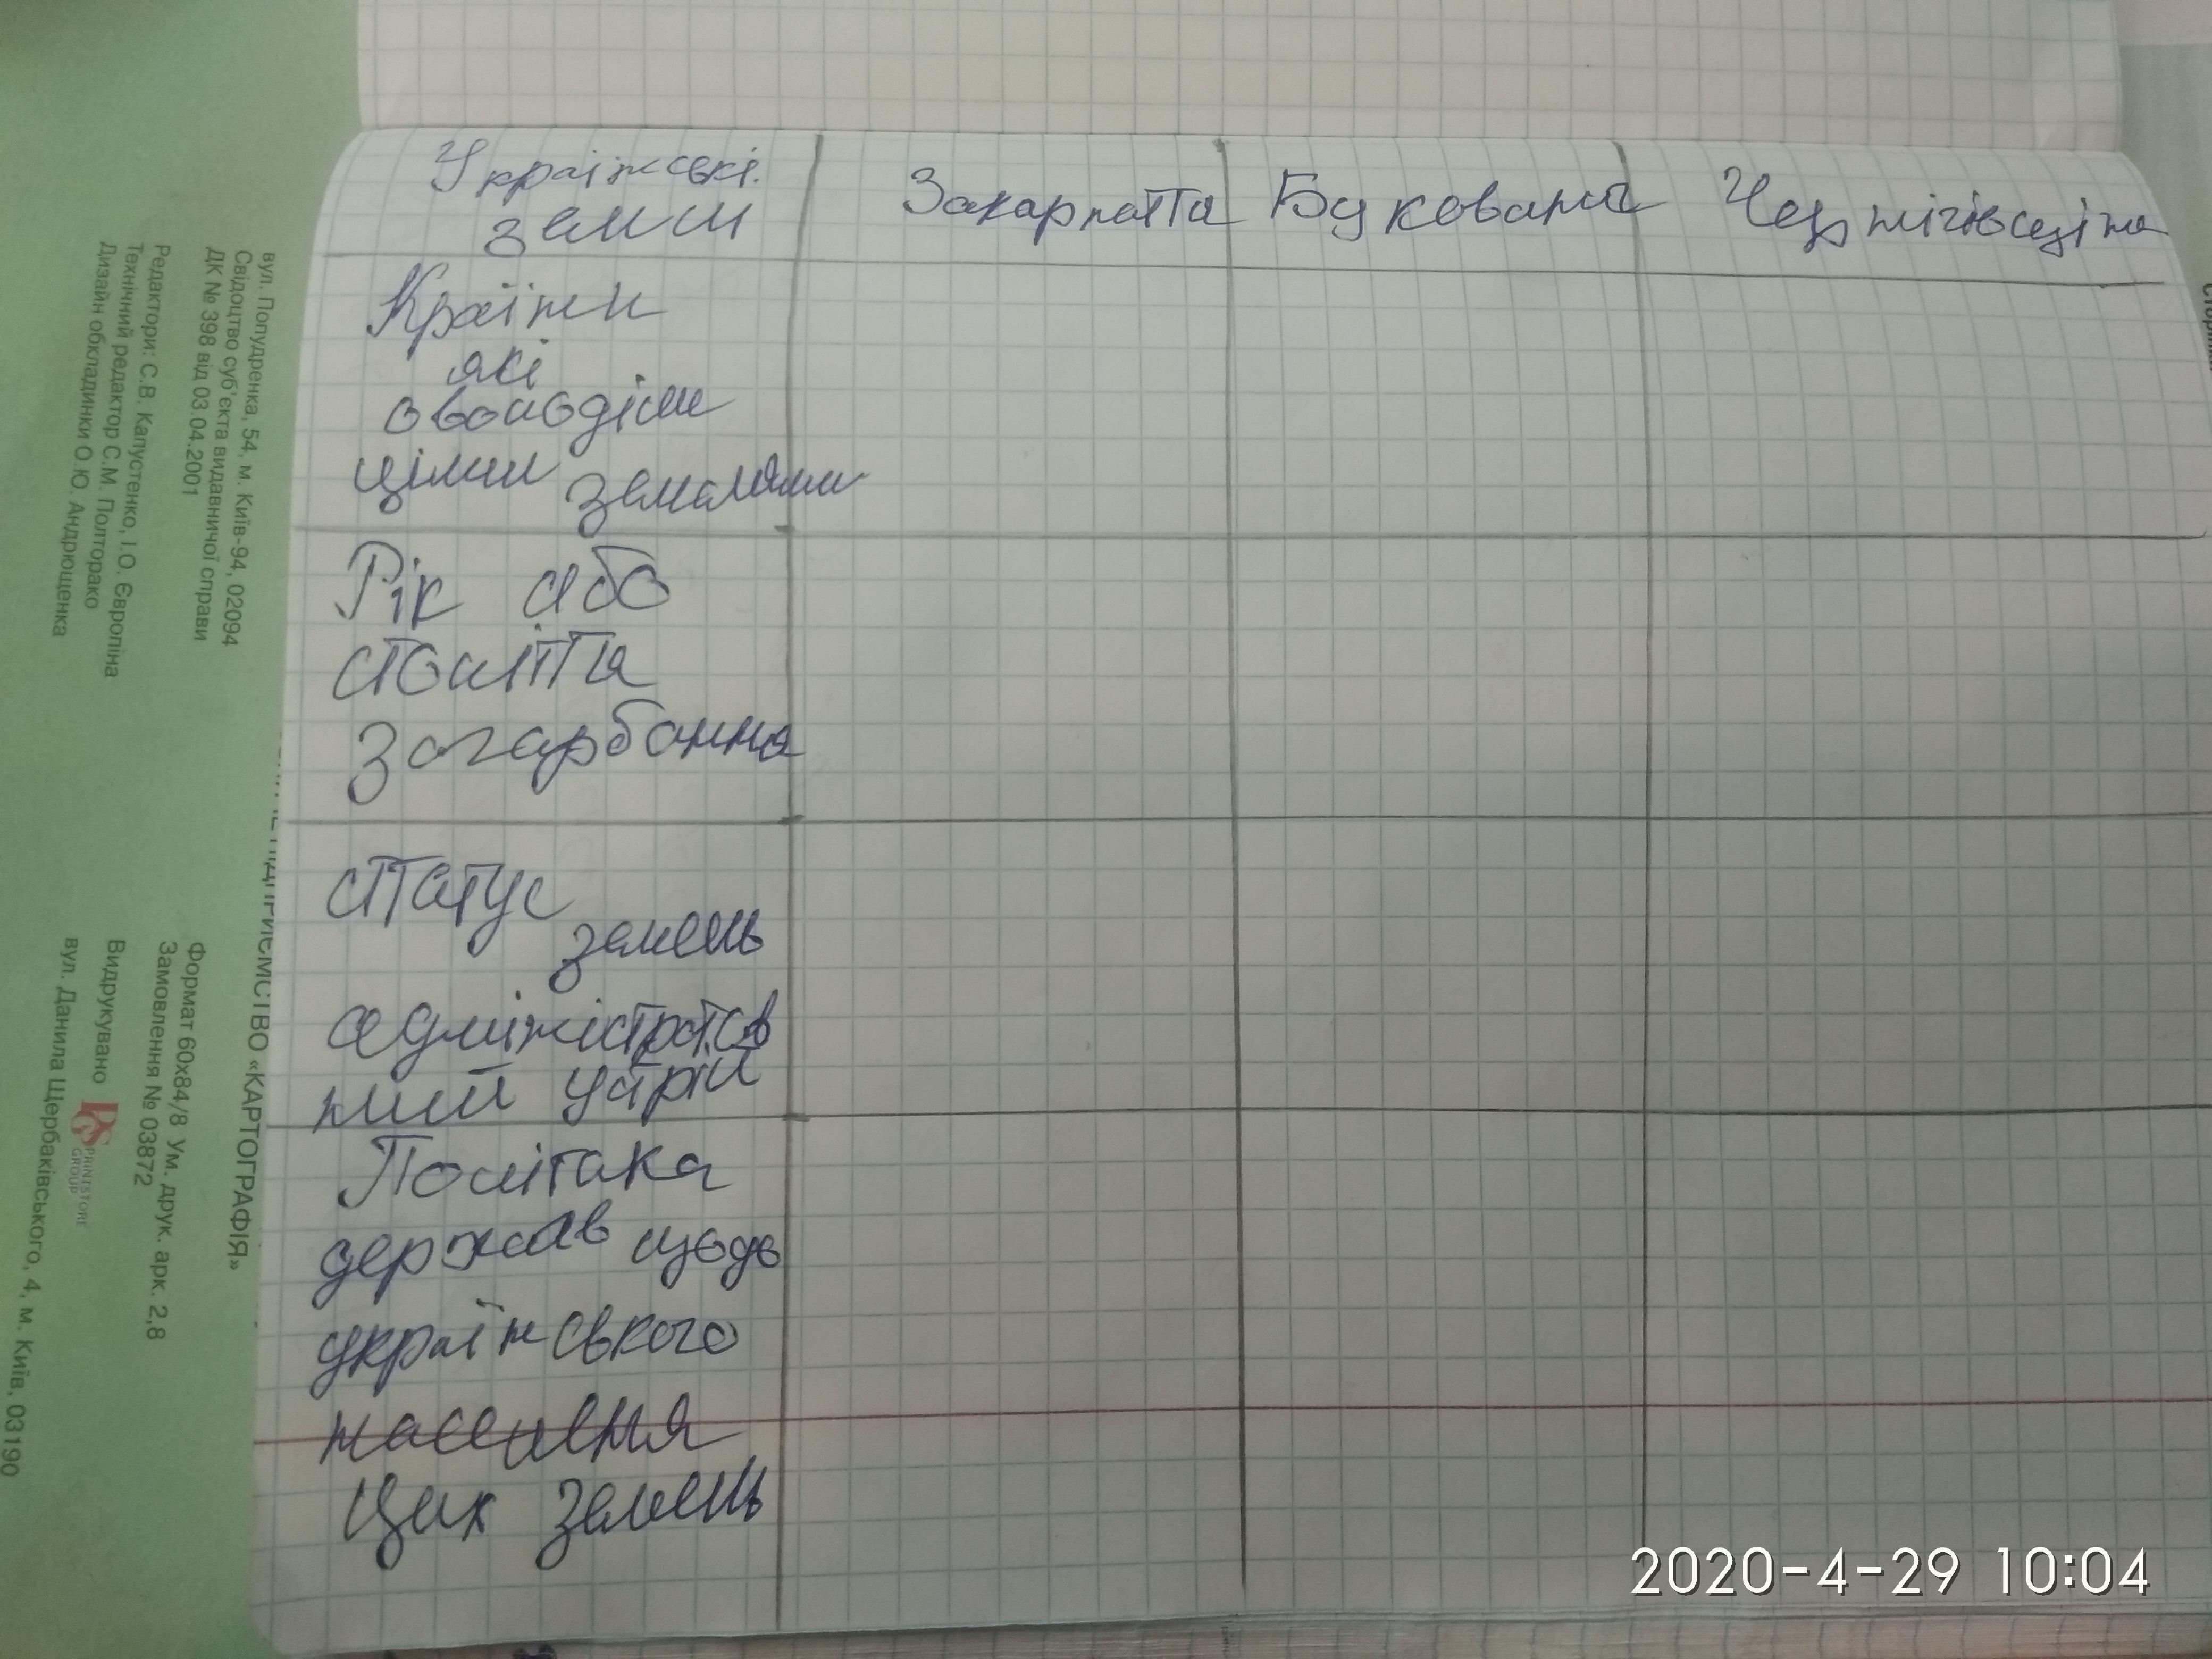 Українські. Закарпаття Буковина Чернігівщина
землі
Країни
які
оволоділи
цими землями
Рік або
століття
Загарбання
статус
земель
адміністратив
ний устрій
Політика
держав щодо
українського
населення
цих земель
вул. Попудренка, 54, м. Київ-94, 02094
Свідоцтво суб'єкта видавничої справи
ДК № 398 від 03.04.2001
Редактори: С.В. Капустенко, І.О. Європіна
Технічний редактор С.М. Полторако
Дизайн обкладинки О.Ю. Андрющенка
«КАРТОГРАФІЯ»
Формат 60х84/8 Ум. друк. арк. 2,8
Замовлення № 03872
Видрукувано PRINTSTORE
GROUP
вул. Данила Щербаківського, 4, м. Київ, 03190
2020-4-29 10:04